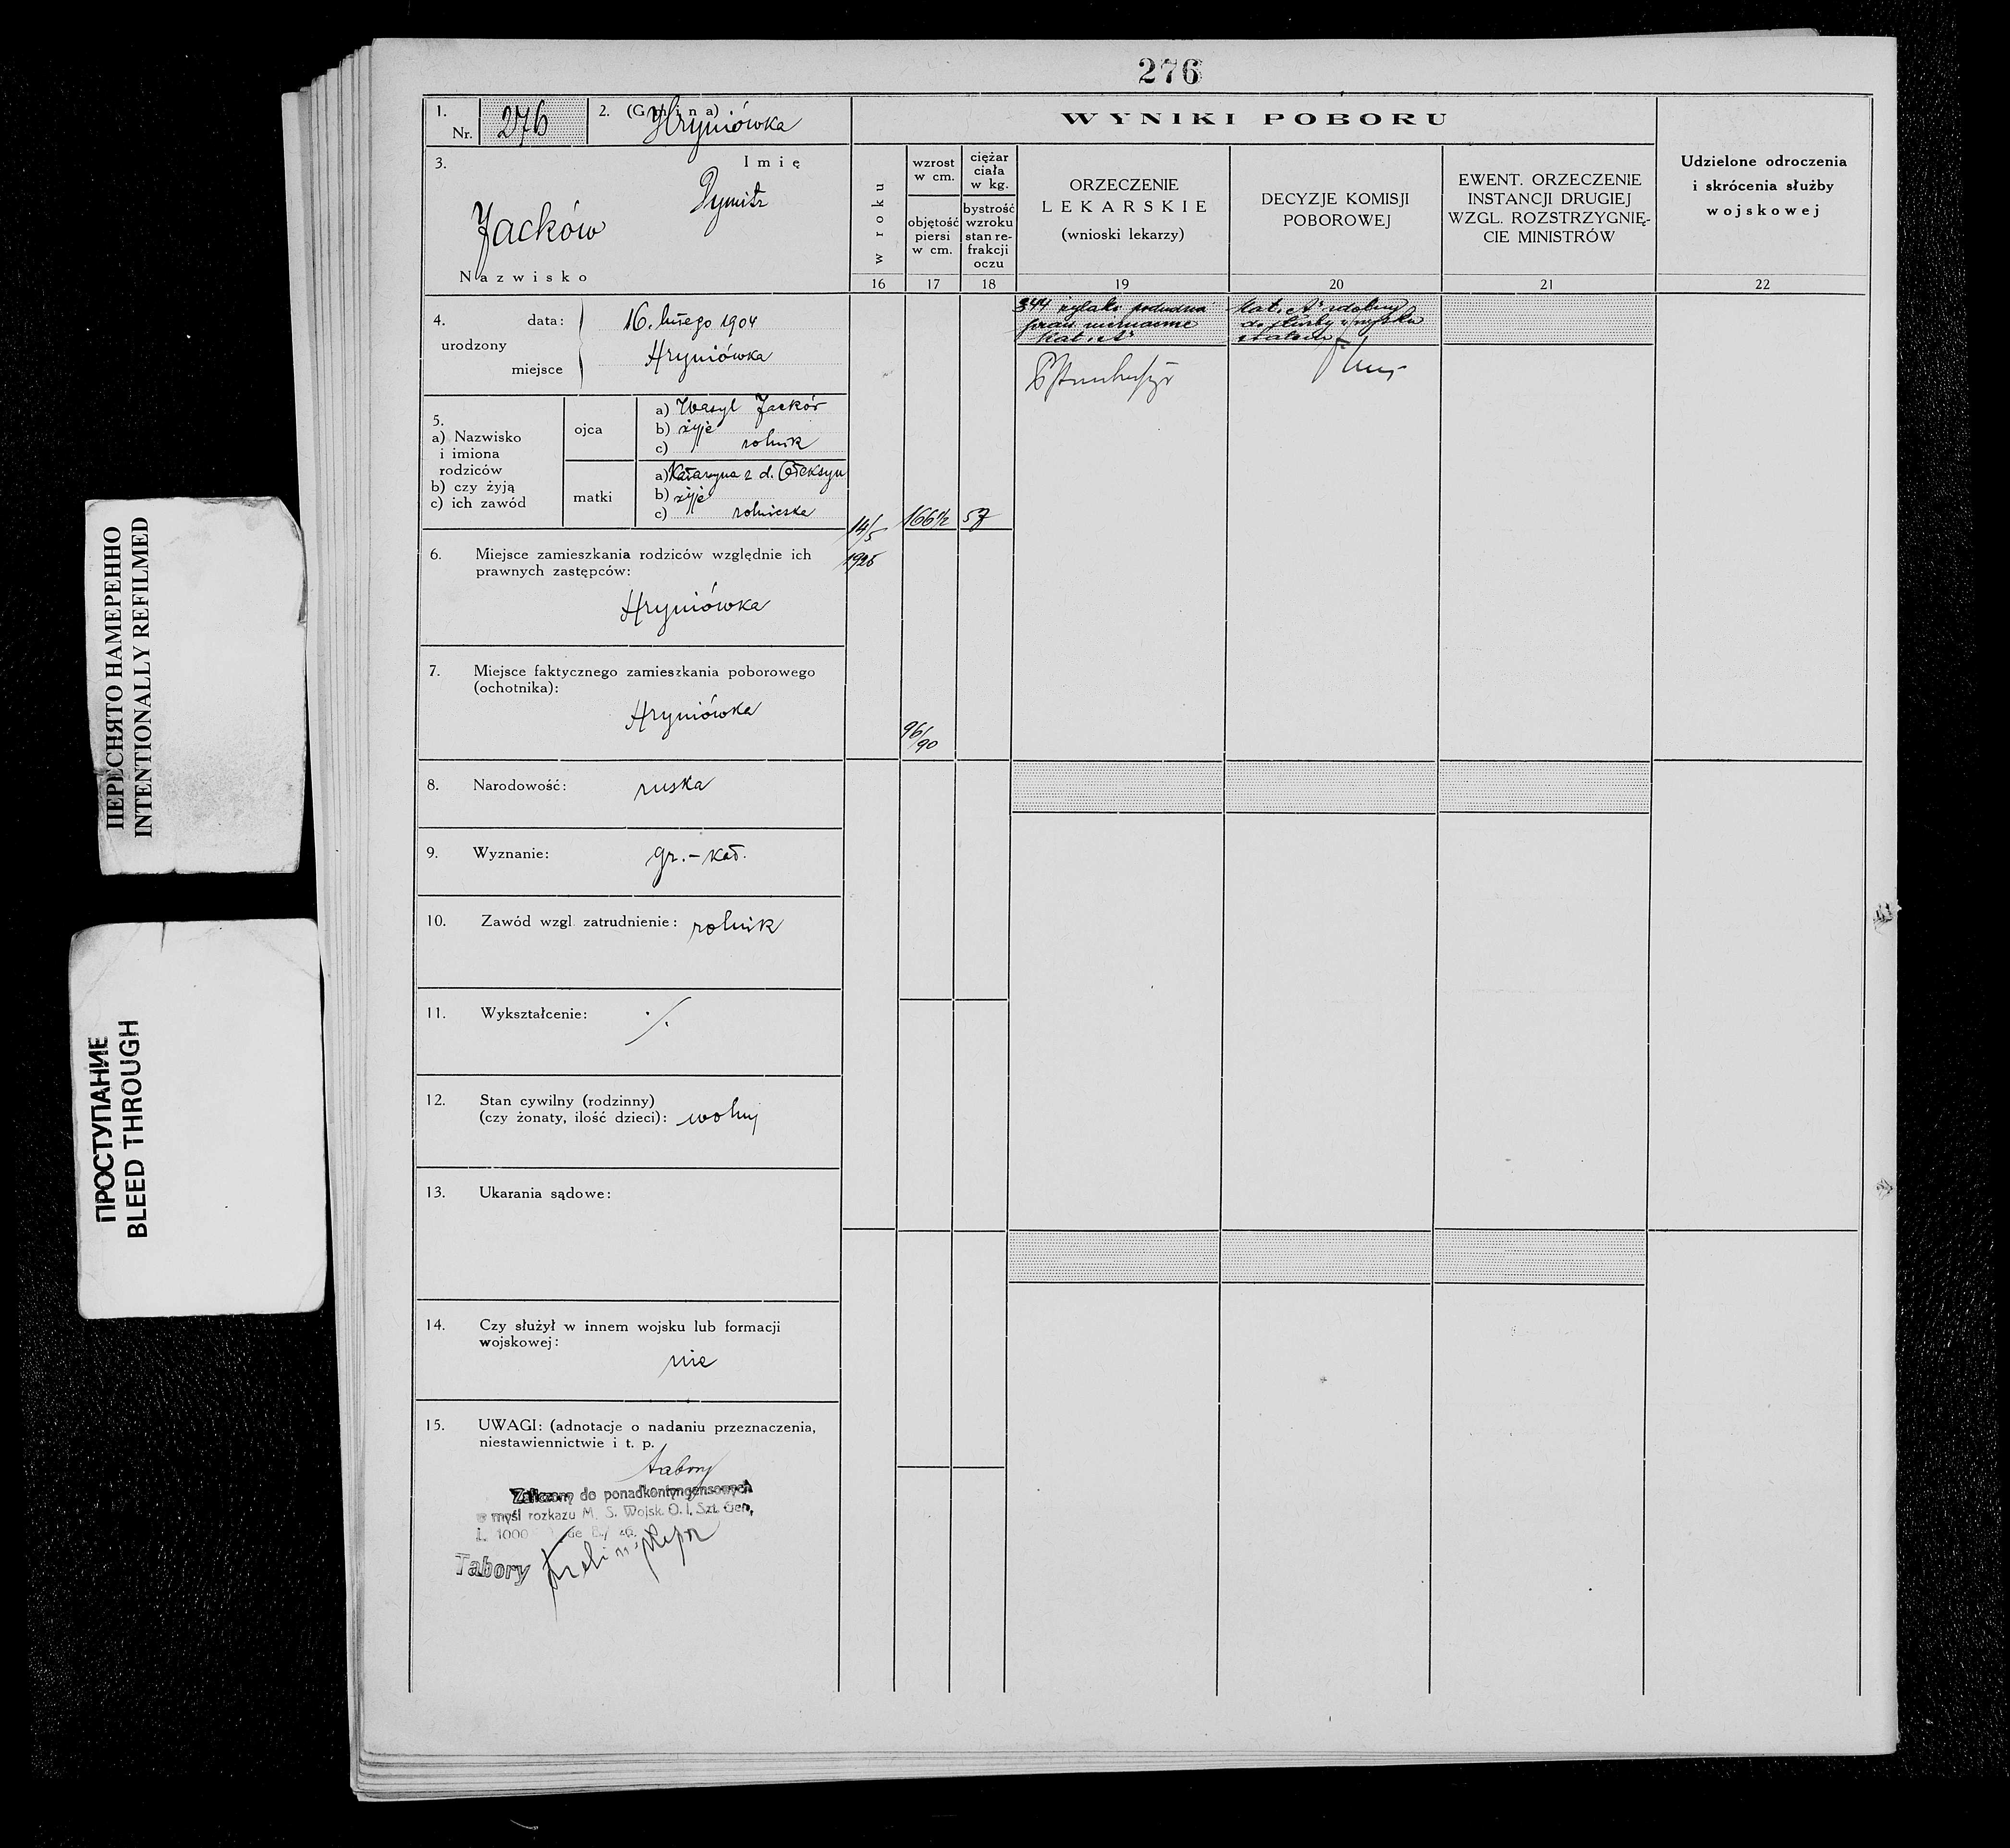 276
1.
Nr. 276
2. (Gmina)
Hryniówka
3.
Imię
Dymitr
Jacków
Nazwisko
4.
urodzony
data: 16. lutego 1904
miejsce Hryniówka
5.
a) Nazwisko
i imiona
rodziców
b) czy żyją
c) ich zawód
ojca
a) Wasyl Jacków
b) żyje
c) rolnik
matki
a) Katarzyna z d. Ołeksyn
b) żyje
c) rolniczka
6. Miejsce zamieszkania rodziców względnie ich
prawnych zastępców:
Hryniówka
7. Miejsce faktycznego zamieszkania poborowego
(ochotnika):
Hryniówka
8. Narodowość: ruska
9. Wyznanie: gr.-kat.
10. Zawód wzgl. zatrudnienie: rolnik
11. Wykształcenie: ./.
12. Stan cywilny (rodzinny)
(czy żonaty, ilość dzieci): wolny
13. Ukarania sądowe:
14. Czy służył w innem wojsku lub formacji
wojskowej:
nie
15. UWAGI: (adnotacje o nadaniu przeznaczenia,
niestawiennictwie i t. p.
tabory
Zaliczony do ponadkontyngensowych
w myśl rozkazu M. S. Wojsk. O. I. Szt. Gen,
L. 1000
Tabory
WYNIKI POBORU
w roku
16
wzrost
w cm.
objętość
piersi
w cm.
17
ciężar
ciała
w kg.
bystrość
wzroku
stan re-
frakcji
oczu
18
ORZECZENIE
LEKARSKIE
(wnioski lekarzy)
19
DECYZJE KOMISJI
POBOROWEJ
20
EWENT. ORZECZENIE
INSTANCJI DRUGIEJ
WZGL. ROZSTRZYGNIĘ-
CIE MINISTRÓW
21
Udzielone odroczenia
i skrócenia służby
wojskowej
22
14/5
1925
166½
57
96/90
344 żylaki podudzia
praw. nieznaczne
Kat. A
Kat. A zdolny
do służby wojsku
stałem
ПЕРЕСНЯТО НАМЕРЕННО
INTENTIONALLY REFILMED
ПРОСТУПАНИЕ
BLEED THROUGH